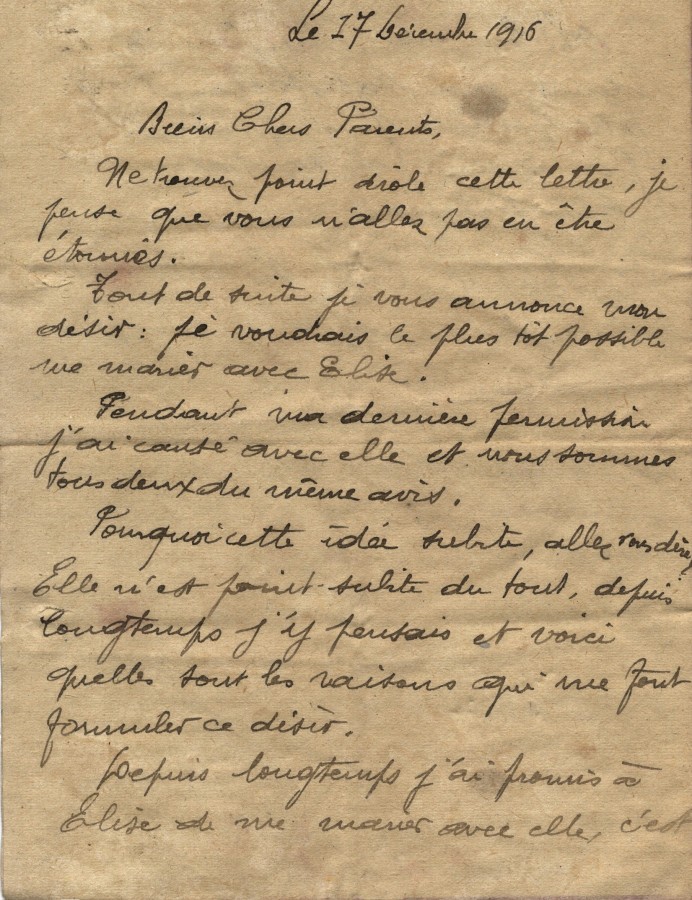 Le 17 Décembre 1916
Biens Chers Parents,
Ne trouvez point drôle cette lettre, je
pense que vous n'allez pas en être
étonnés.
Tout de suite je vous annonce mon
désir : je voudrais le plus tôt possible
me marier avec Elise.
Pendant ma dernière permission
j'ai causé avec elle et nous sommes
tous deux du même avis.
Pourquoi cette idée subite, allez vous dire,
Elle n'est point subite du tout, depuis
longtemps j'y pensais et voici
quelles sont les raisons qui me font
formuler ce désir.
Depuis longtemps j'ai promis à
Elise de me marier avec elle, c'est